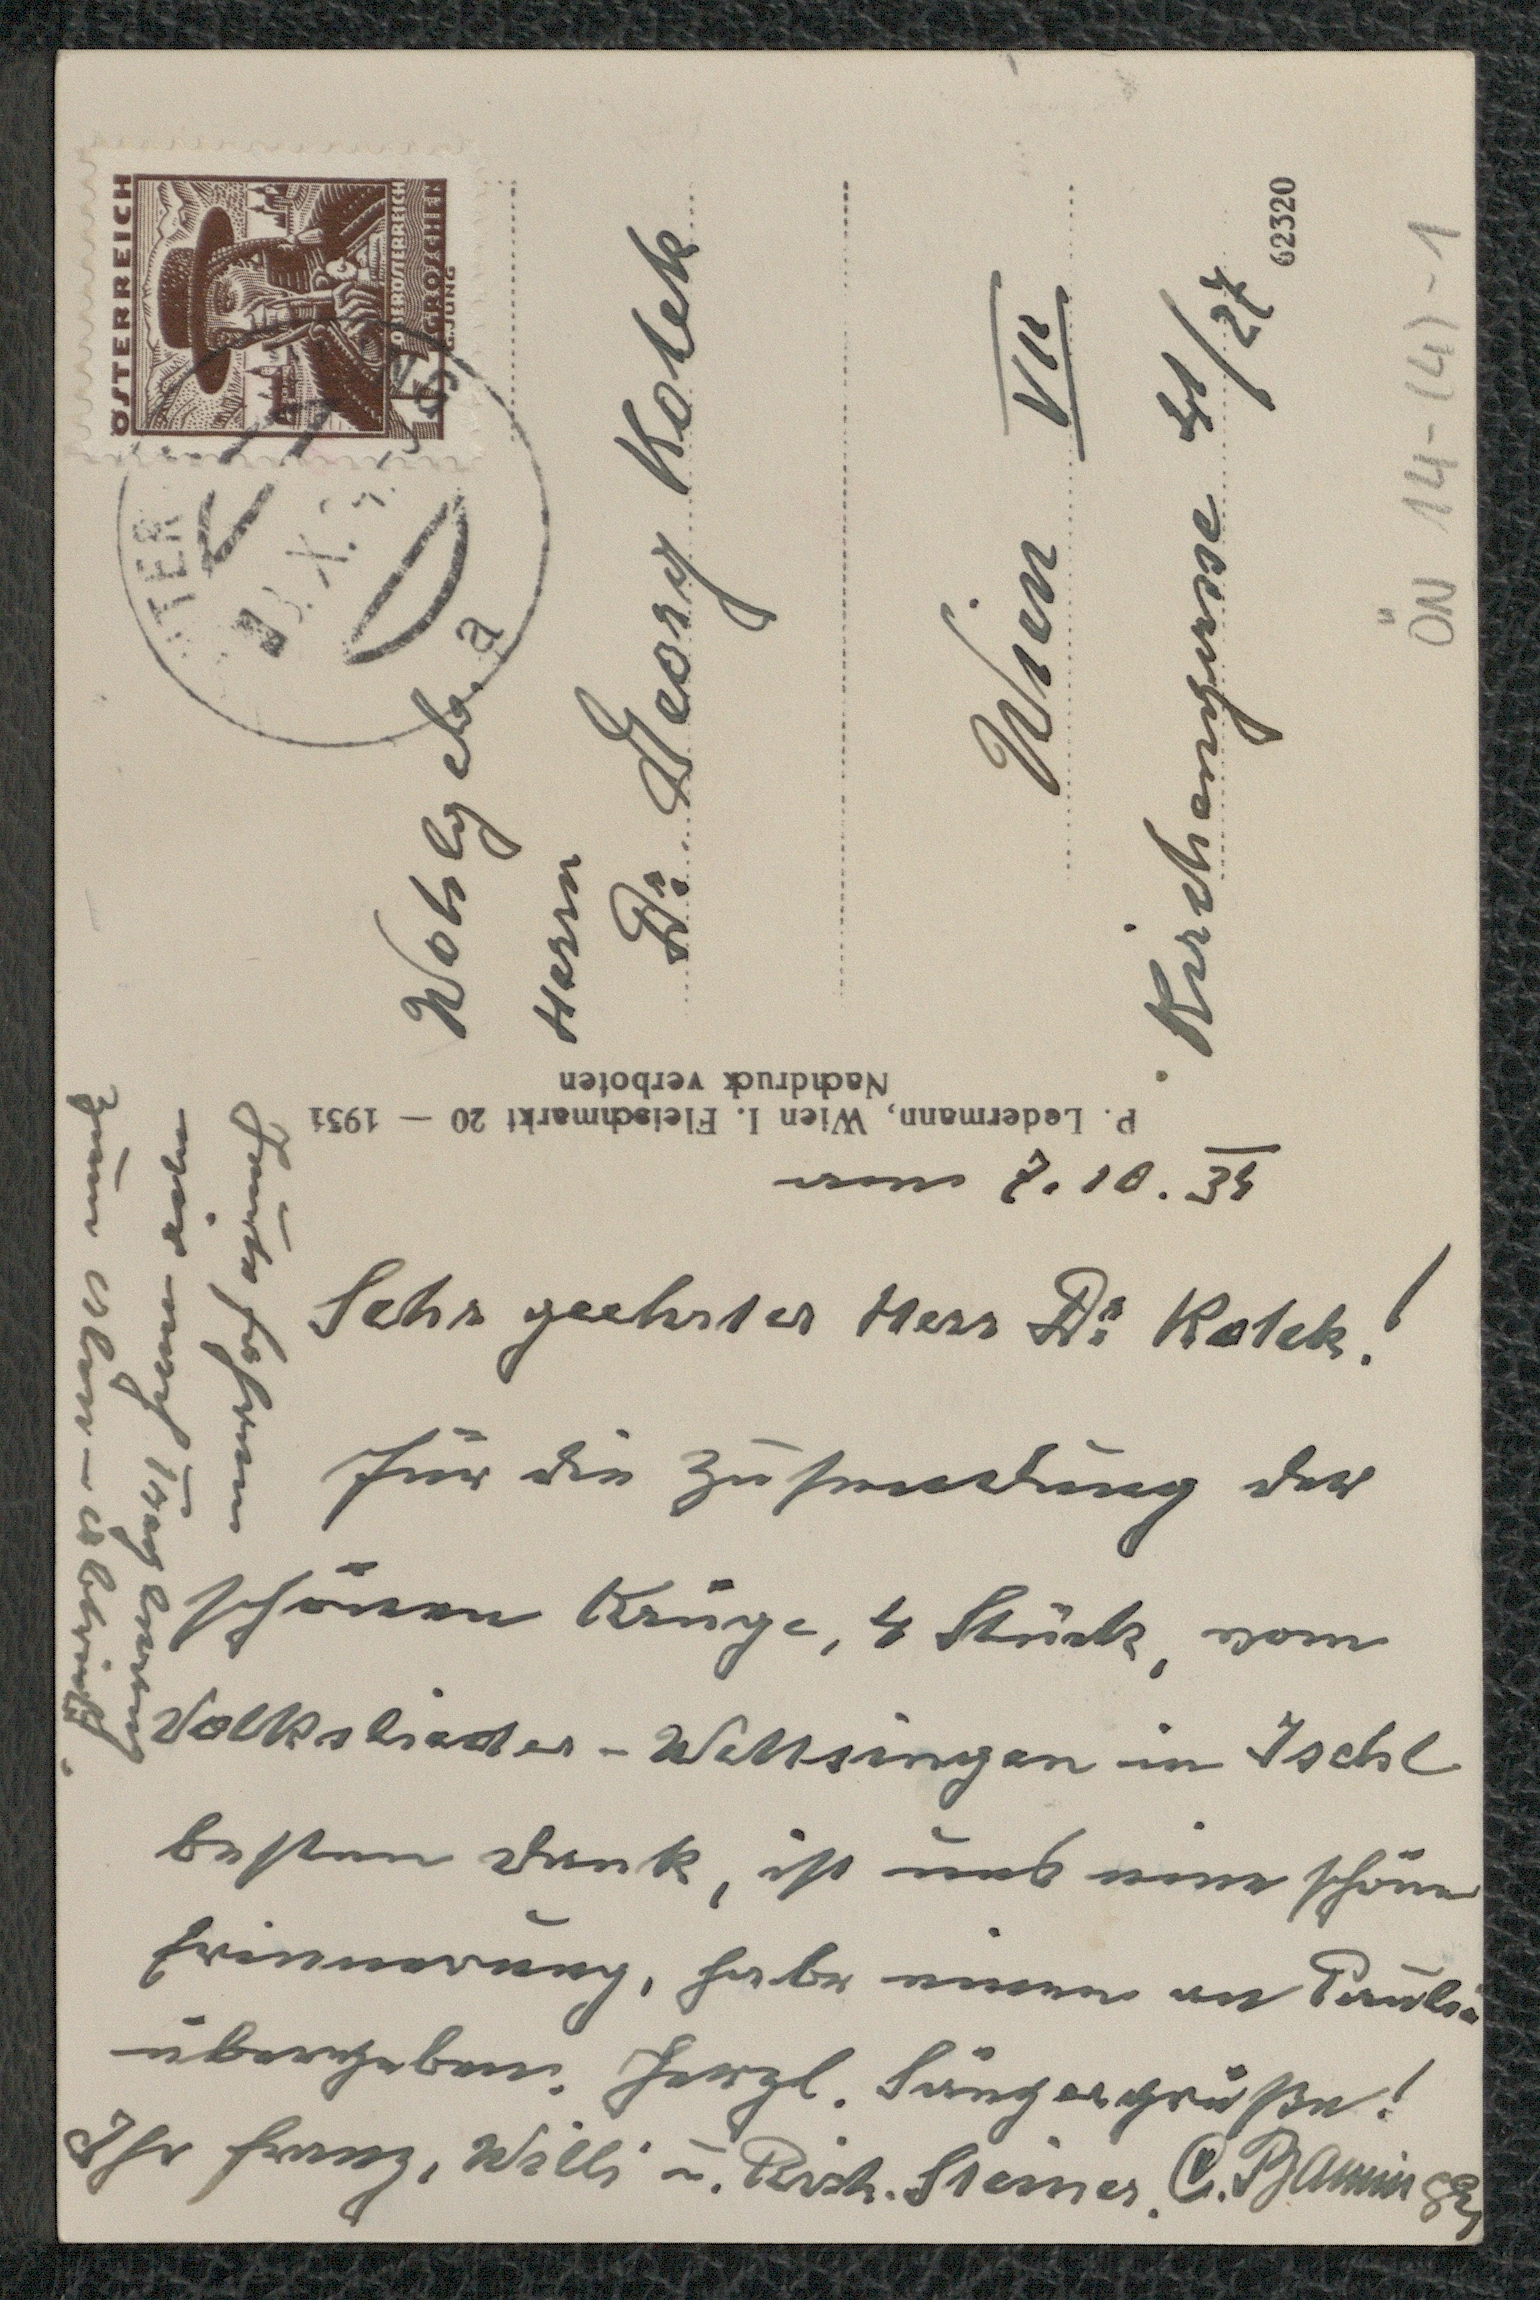 ÖSTERREICH
OBERÖSTERREICH
GROSCHEN
G. JUNG
a
Wohlgeb.
Herrn
Dr. Georg Kotek
Wien VII
Kirchengasse 41/27
62320
ÖN 14-(4)-1
P. Ledermann, Wien I. Fleischmarkt 20 — 1931
Nachdruck verboten
am 7.10.34
Sehr geehrter Herr Dr. Kotek!
Für die Zusendung der
schönen Krüge, 4 Stück, vom
Volkslieder-Wettsingen in Ischl
besten Dank, ist uns eine schöne
Erinnerung, habe einen an Pauli
übergeben. Herzl. Sängergrüße!
Ihr Franz, Willi u. Rich. Steiner. C.
Heute fahren
wir
zum